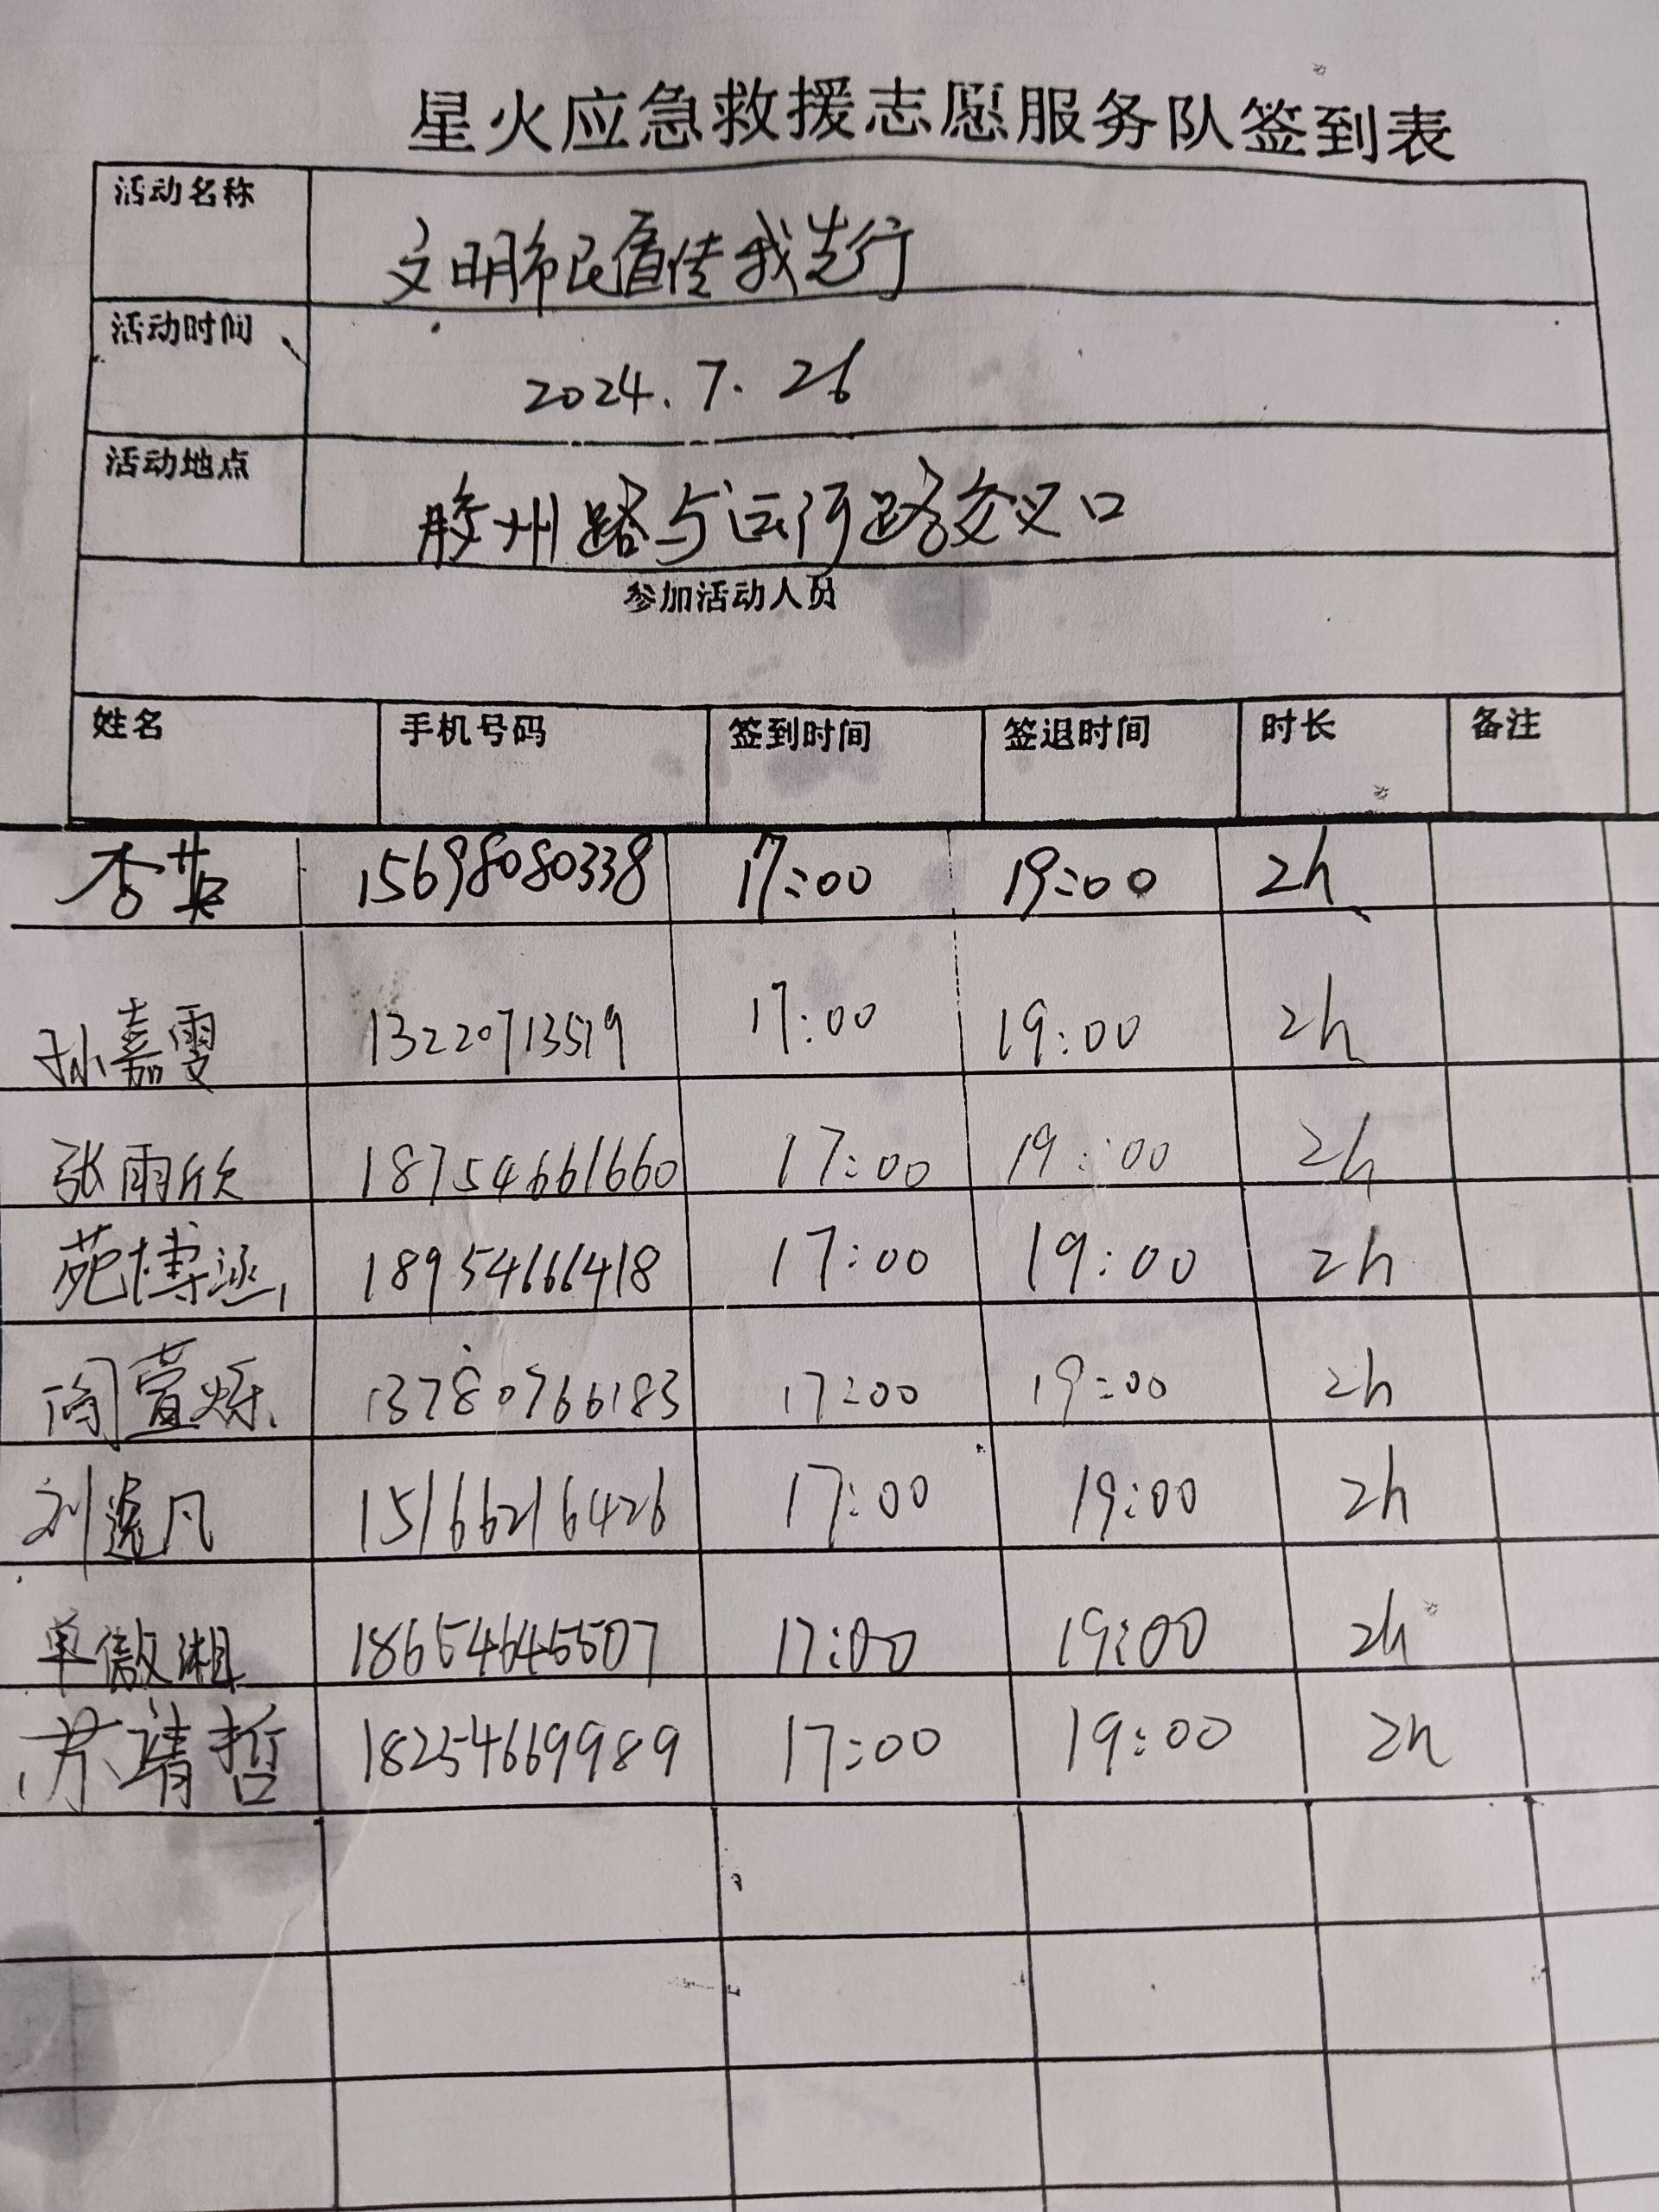 星火应急救援志愿服务队签到表
活动名称 文明市民宣传我先行
活动时间 2024.7.26
活动地点 胶州路与运河路交叉口
参加活动人员
姓名 手机号码 签到时间 签退时间 时长 备注
李英 15698080338 17:00 19:00 2h
孙嘉雯 13220713519 17:00 19:00 2h
张雨欣 18754661660 17:00 19:00 2h
苑博涵 18954666418 17:00 19:00 2h
阎萱烁 13780766183 17:00 19:00 2h
刘逸凡 15166216426 17:00 19:00 2h
单傲湘 18654645507 17:00 19:00 2h
苏靖哲 18254669989 17:00 19:00 2h